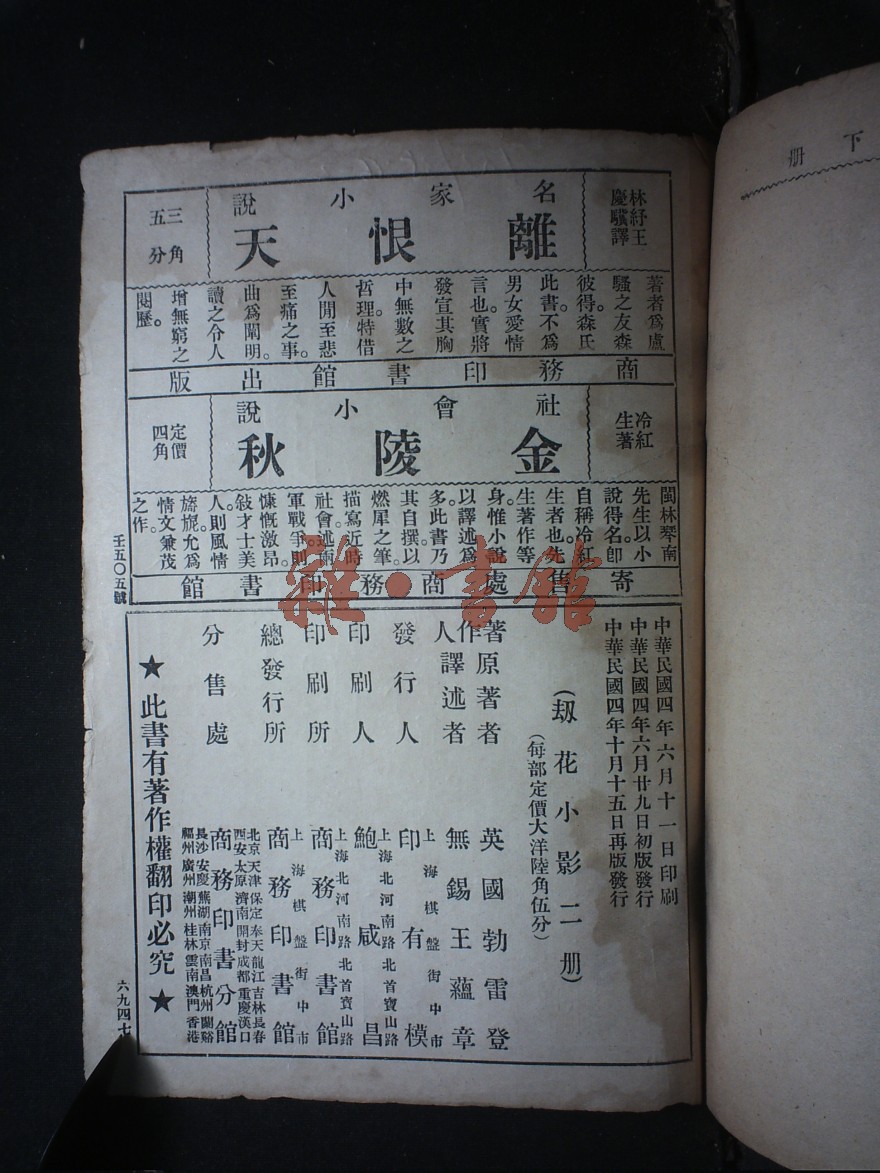 下册
林紓王
慶驥譯
名家小說
離恨天
三角
五分
著者爲盧
騷之友森
彼得。森氏
此書不爲
男女愛情
言也。實將
發宣其胸
中無數之
哲理。特借
人間至悲
至痛之事。
曲爲闡明。
讀之令人
增無窮之
閱歷。
商務印書館出版
冷紅
生著
社會小說
金陵秋
定價
四角
閩林琴南
先生以小
說得名。卽
自稱冷紅
生者也。先
生著作等
身。惟小說
以譯述爲
多。此書乃
其自撰。以
燃犀之筆
描寫近時
社會。述兩
軍戰爭。則
慷慨激昂。
敍才士美
人。則風情
旖旎。允爲
情文兼茂
之作。
寄售處商務印書館
壬五〇五號
中華民國四年六月十一日印刷
中華民國四年六月廿九日初版發行
中華民國四年十月十五日再版發行
(刼花小影二册)
(每部定價大洋陸角伍分)
著作人
原著者 英國勃雷登
譯述者 無錫王蘊章
發行人 上海棋盤街中市
印有模
印刷人 上海北河南路北首寶山路
鮑咸昌
印刷所 上海北河南路北首寶山路
商務印書館
總發行所 上海棋盤街中市
商務印書館
分售處
北京天津保定奉天龍江吉林長春
西安太原濟南開封成都重慶漢口
商務印書分館
長沙安慶蕪湖南京南昌杭州蘭谿
福州廣州潮州桂林雲南澳門香港
★此書有著作權翻印必究★
六九四七
雜·書館